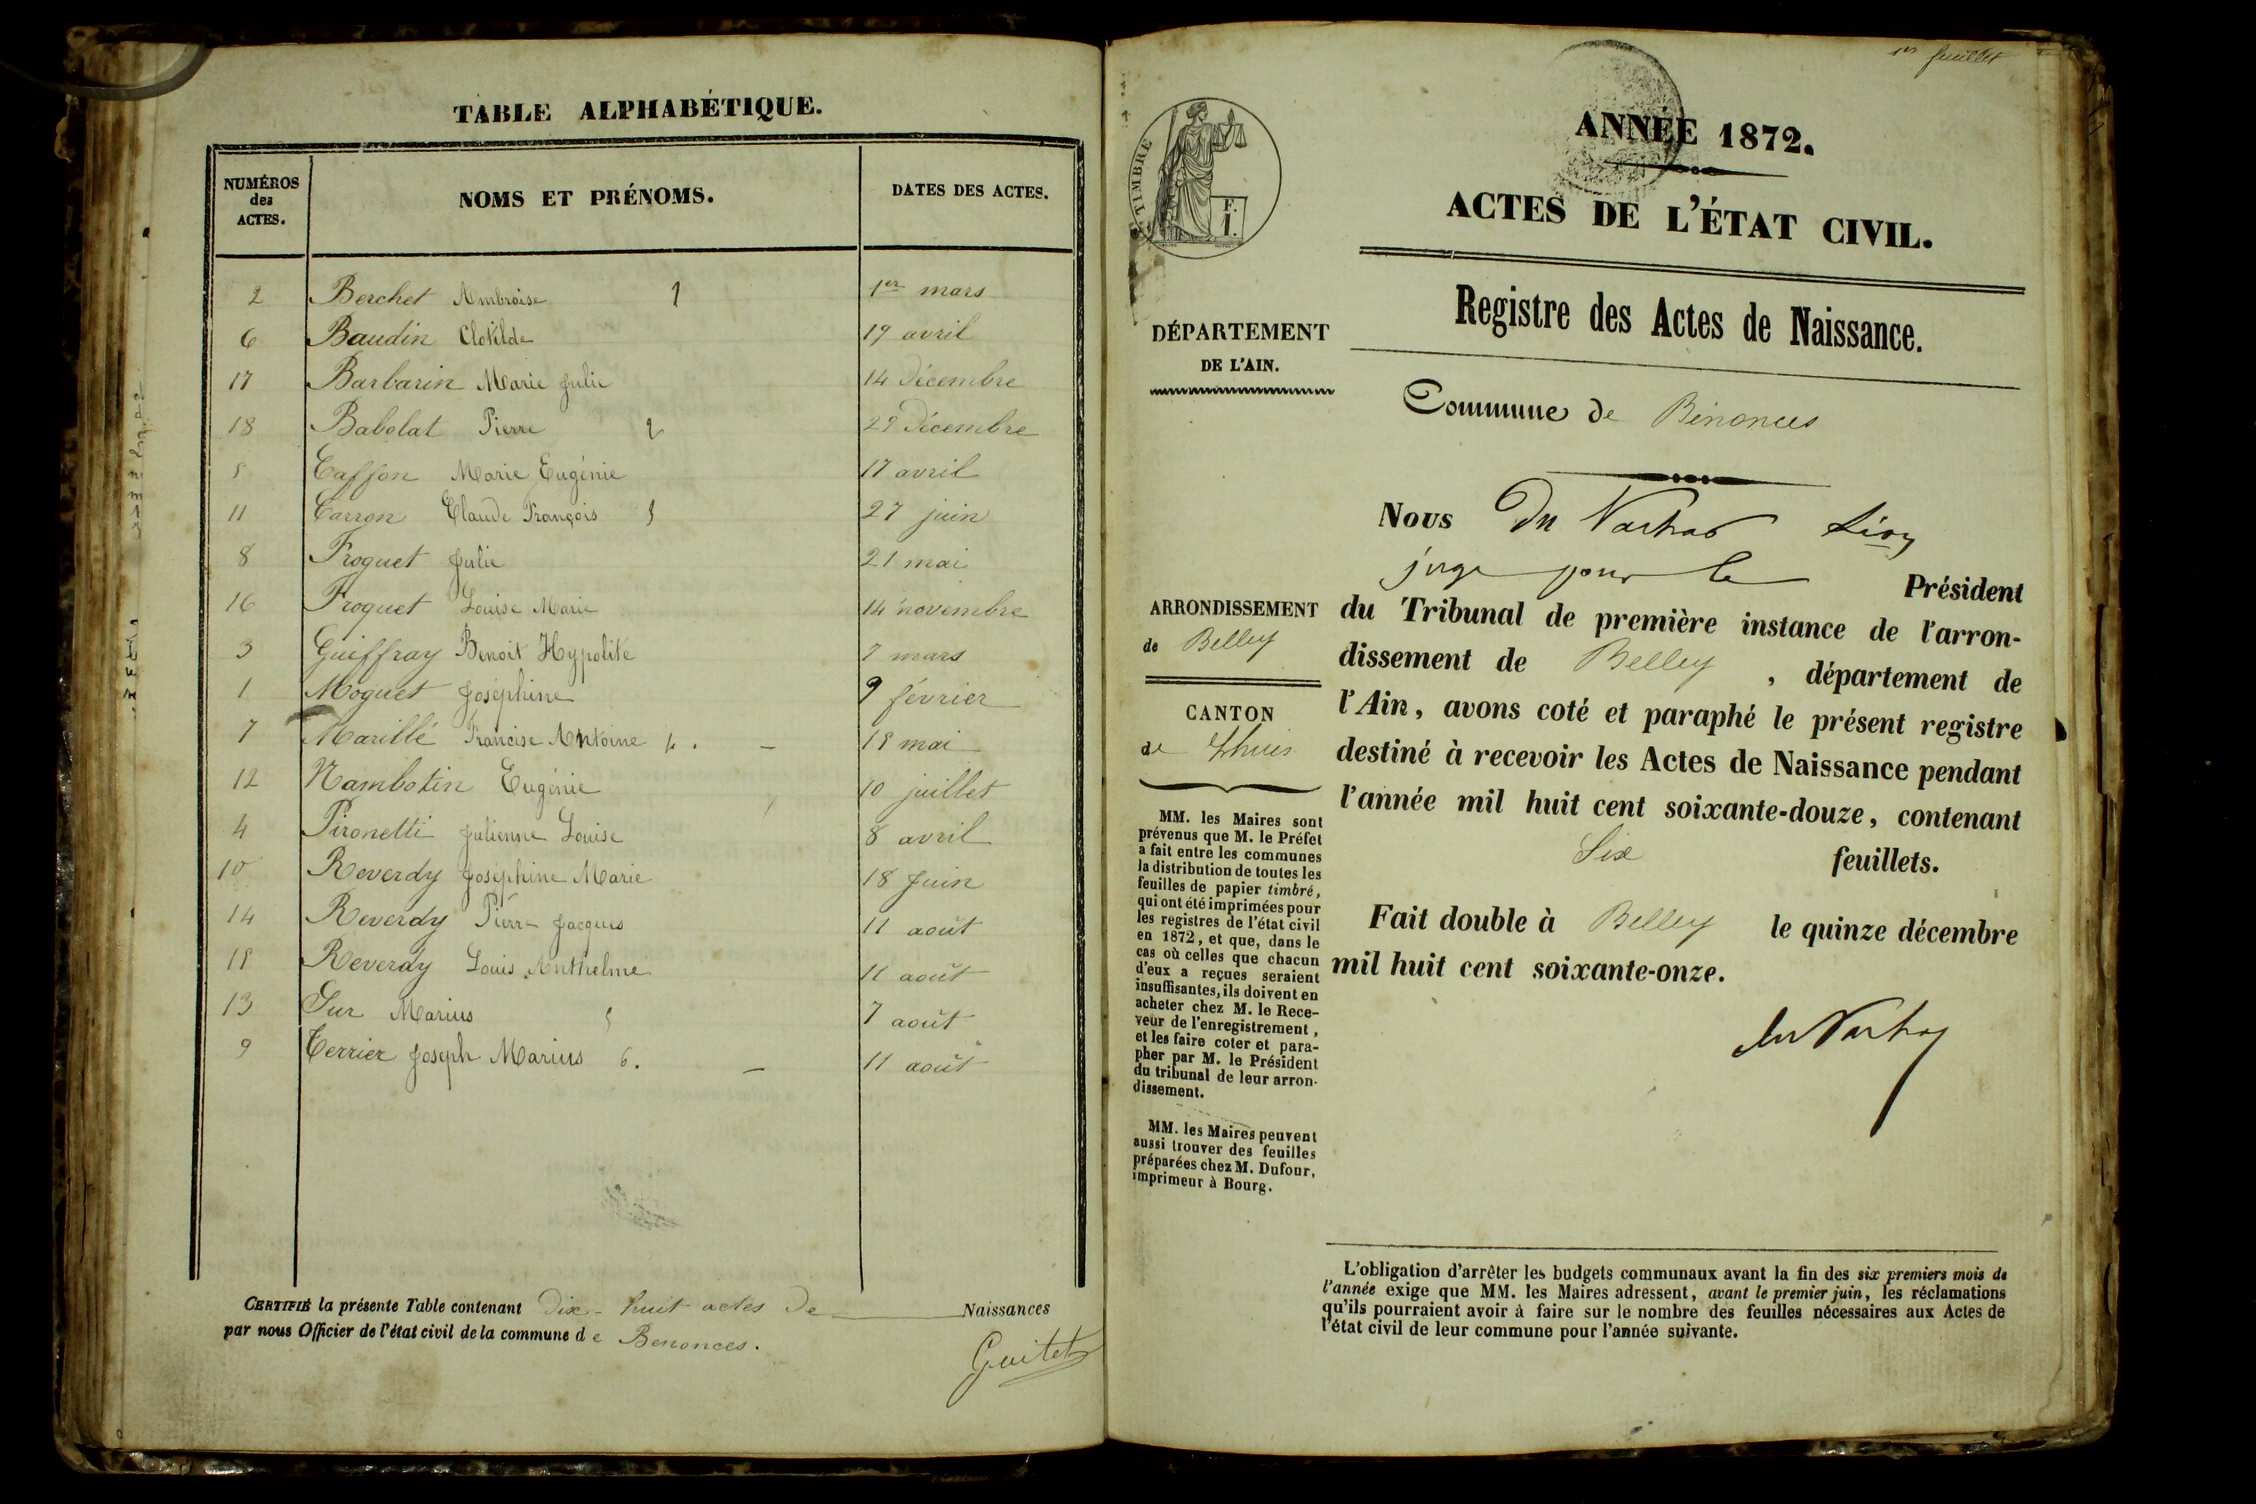 TABLE ALPHABÉTIQUE.
NUMÉROS des ACTES. NOMS ET PRÉNOMS. DATES DES ACTES.
2 Berchet Ambroise 1 1er mars
6 Baudin Clotilde 19 avril
17 Barbarin Marie Julie 14 Décembre
18 Babolat Pierre 2 29 Décembre
5 Caffon Marie Eugénie 17 avril
11 Carron Claude François 3 27 juin
8 Froquet Julie 21 mai
16 Froquet Louise Marie 14 novembre
3 Guiffray Benoit Hypolite 7 mars
1 Moguet Joséphine 9 février
7 Marillé Francise Antoine 4. – 18 mai
12 Nambotin Eugénie 10 juillet
4 Pironetti Julienne Louise 8 avril
10 Reverdy Joséphine Marie 18 Juin
14 Reverdy Pierre Jacques 11 août
Reverdy Louis Anthelme 11 août
13 Sur Marius 5 7 août
9 Terrier Joseph Marius 6. – 11 août
CERTIFIÉ la présente Table contenant Dix-huit actes De Naissances
par nous Officier de l'état civil de la commune de Benonces.
Guitet
1er feuillet
TIMBRE
F.
1.
ANNÉE 1872.
ACTES DE L'ÉTAT CIVIL.
Registre des Actes de Naissance.
DÉPARTEMENT
DE L'AIN.
Commune de Bénonces
ARRONDISSEMENT
de Belley
CANTON
de Lhuis
MM. les Maires sont
prévenus que M. le Préfet
a fait entre les communes
la distribution de toutes les
feuilles de papier timbré,
qui ont été imprimées pour
les registres de l'état civil
en 1872, et que, dans le
cas où celles que chacun
d'eux a reçues seraient
insuffisantes, ils doivent en
acheter chez M. le Rece-
veur de l'enregistrement,
et les faire coter et para-
pher par M. le Président
du tribunal de leur arron-
dissement.
MM. les Maires peuvent
aussi trouver des feuilles
préparées chez M. Dufour,
imprimeur à Bourg.
Nous Du
juge pour le Président
du Tribunal de première instance de l'arron-
dissement de Belley, département de
l'Ain, avons coté et paraphé le présent registre
destiné à recevoir les Actes de Naissance pendant
l'année mil huit cent soixante-douze, contenant
Six feuillets.
Fait double à Belley le quinze décembre
mil huit cent soixante-onze.
L'obligation d'arrêter les budgets communaux avant la fin des six premiers mois de
l'année exige que MM. les Maires adressent, avant le premier juin, les réclamations
qu'ils pourraient avoir à faire sur le nombre des feuilles nécessaires aux Actes de
l'état civil de leur commune pour l'année suivante.